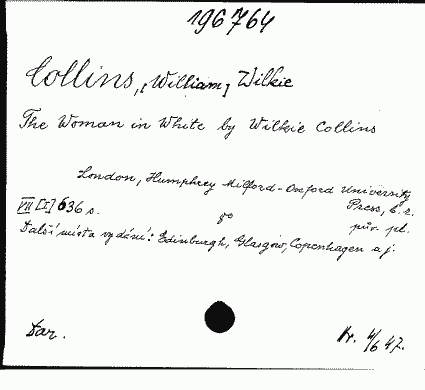 196764
Collins, [William] Wilkie
The Woman in White by Wilkie Collins
London, Humphrey Milford - Oxford University
Press, b. r.
VII [I] 636 s. 8° pův. pl.
Další místa vydání: Edinburgh, Glasgow, Copenhagen aj.
Dar. Kr. 4/6 47.